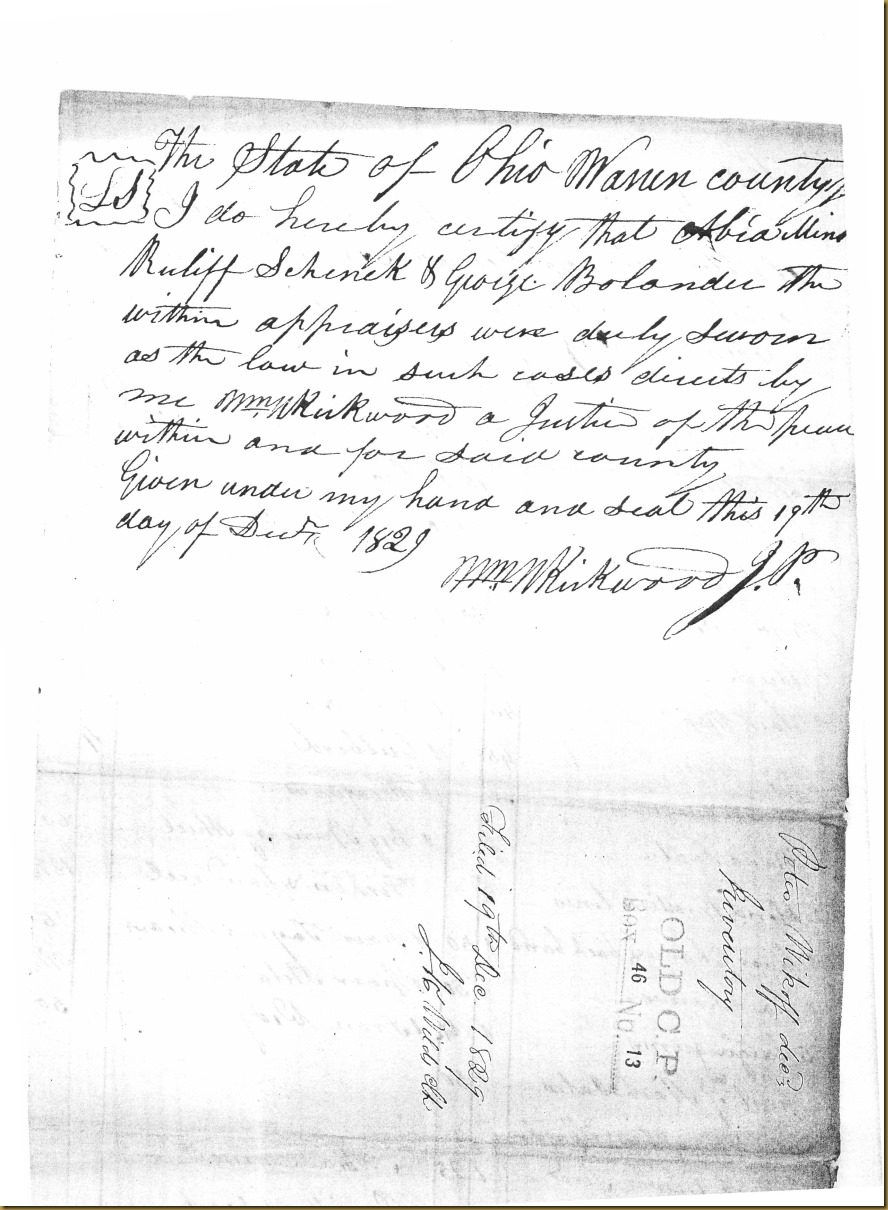 The State of Ohio Warren county,
LS
I do hereby certify that Abia Mino
Ruliff Schenck & George Bolander the
within appraisers were duly sworn
as the law in such cases directs by
me Wm W Kirkwood a Justice of the peace
within and for said county
Given under my hand and seal this 19th
day of Decr 1829
Wm W Kirkwood J.P.
Peter Wikoff decd
Inventory
OLD C. P.
Box 46 No. 13
Filed 19th Dec. 1829
J. K. Wilds Clk